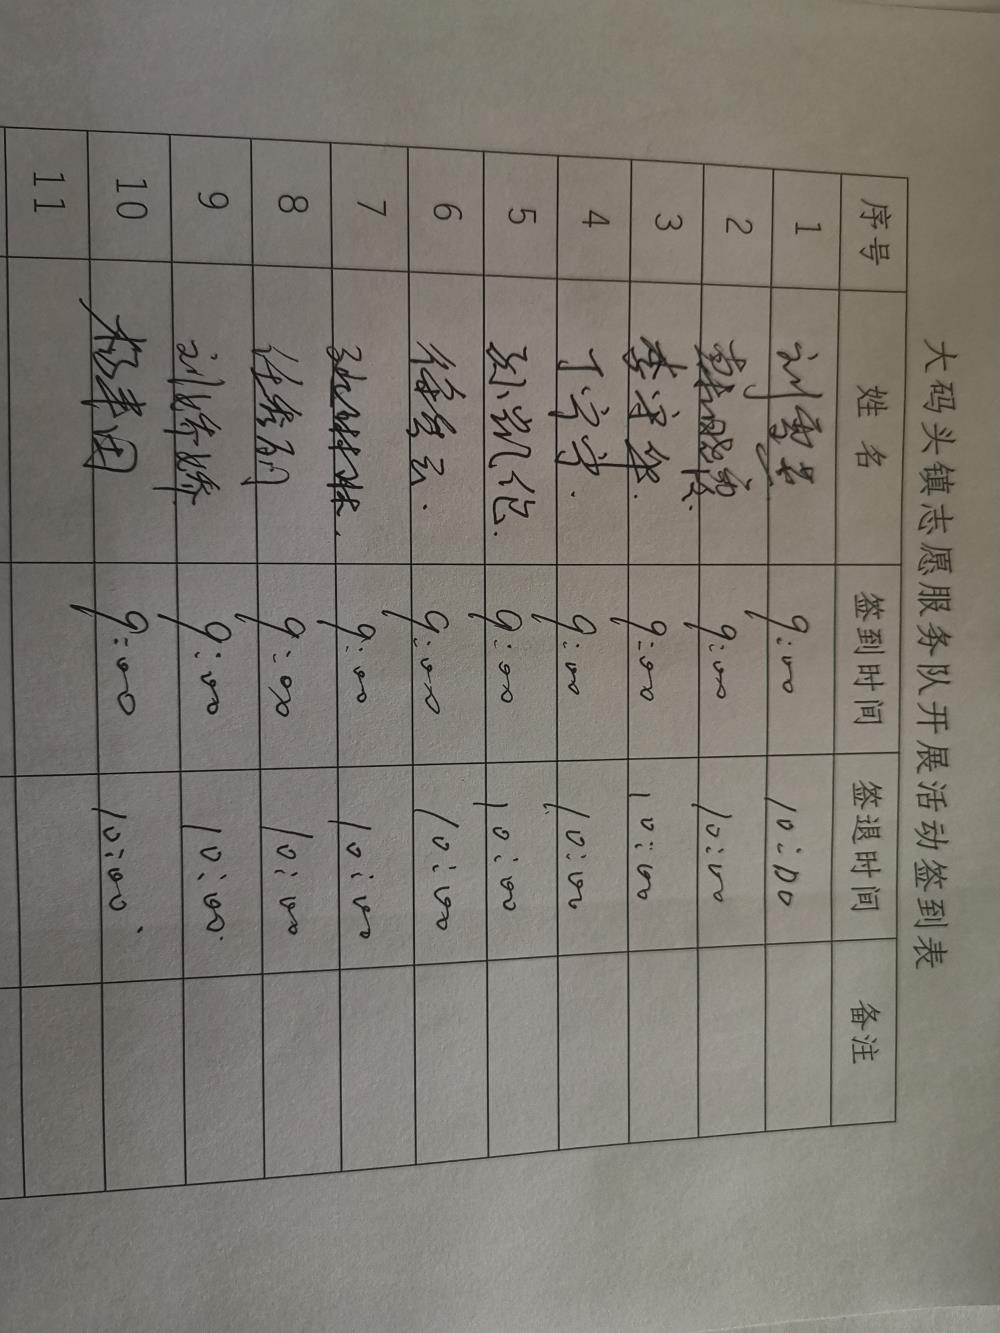 大码头镇志愿服务队开展活动签到表
序号 姓名 签到时间 签退时间 备注
1 刘雪 9:00 10:00
2 9:00 10:00
3 9:00 10:00
4 丁 9:00 10:00
5 刘凯 9:00 10:00
6 徐 9:00 10:00
7 9:00 10:00
8 任 9:00 10:00
9 刘婷婷 9:00 10:00
10 杨 9:00 10:00
11